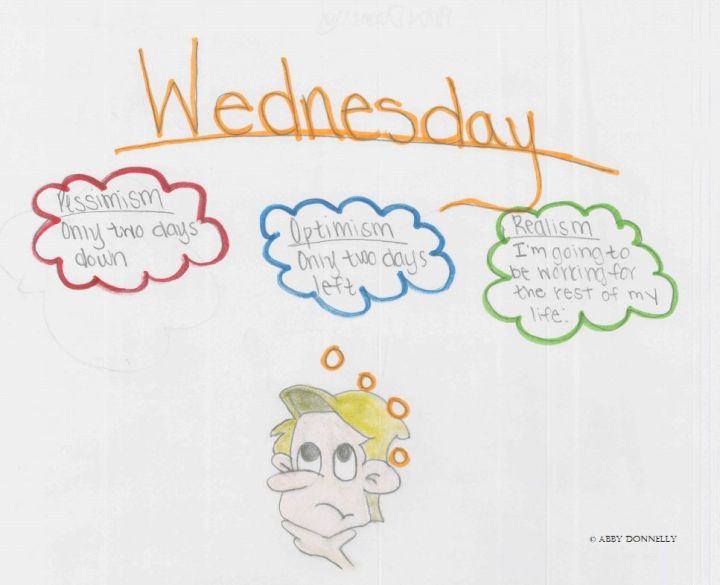 Wednesday
Pessimism
Only two days
down
Optimism
Only two days
left
Realism
I'm going to
be working for
the rest of my
life.
© ABBY DONNELLY